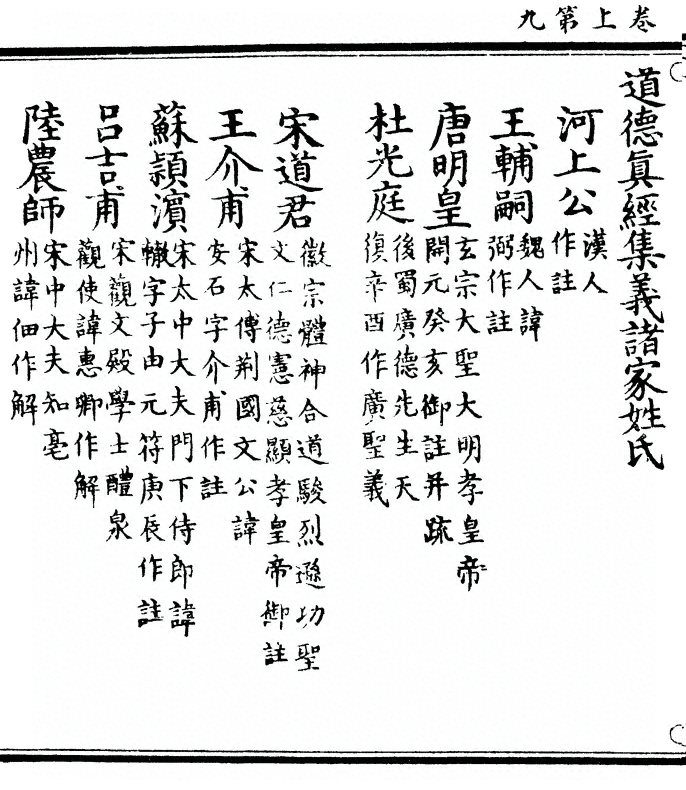 卷上第九
道德眞經集義諸家姓氏
河上公 漢人作註
王輔嗣 魏人諱弼作註
唐明皇 玄宗大聖大明孝皇帝開元癸亥御註并疏
杜光庭 後蜀廣德先生天復辛酉作廣聖義
宋道君 徽宗體神合道駿烈遜功聖文仁德憲慈顯孝皇帝御註
王介甫 宋太傅荊國文公諱安石字介甫作註
蘇頴濱 宋太中大夫門下侍郎諱轍字子由元符庚辰作註
呂吉甫 宋觀文殿學士醴泉觀使諱惠卿作解
陸農師 宋中大夫知亳州諱佃作解